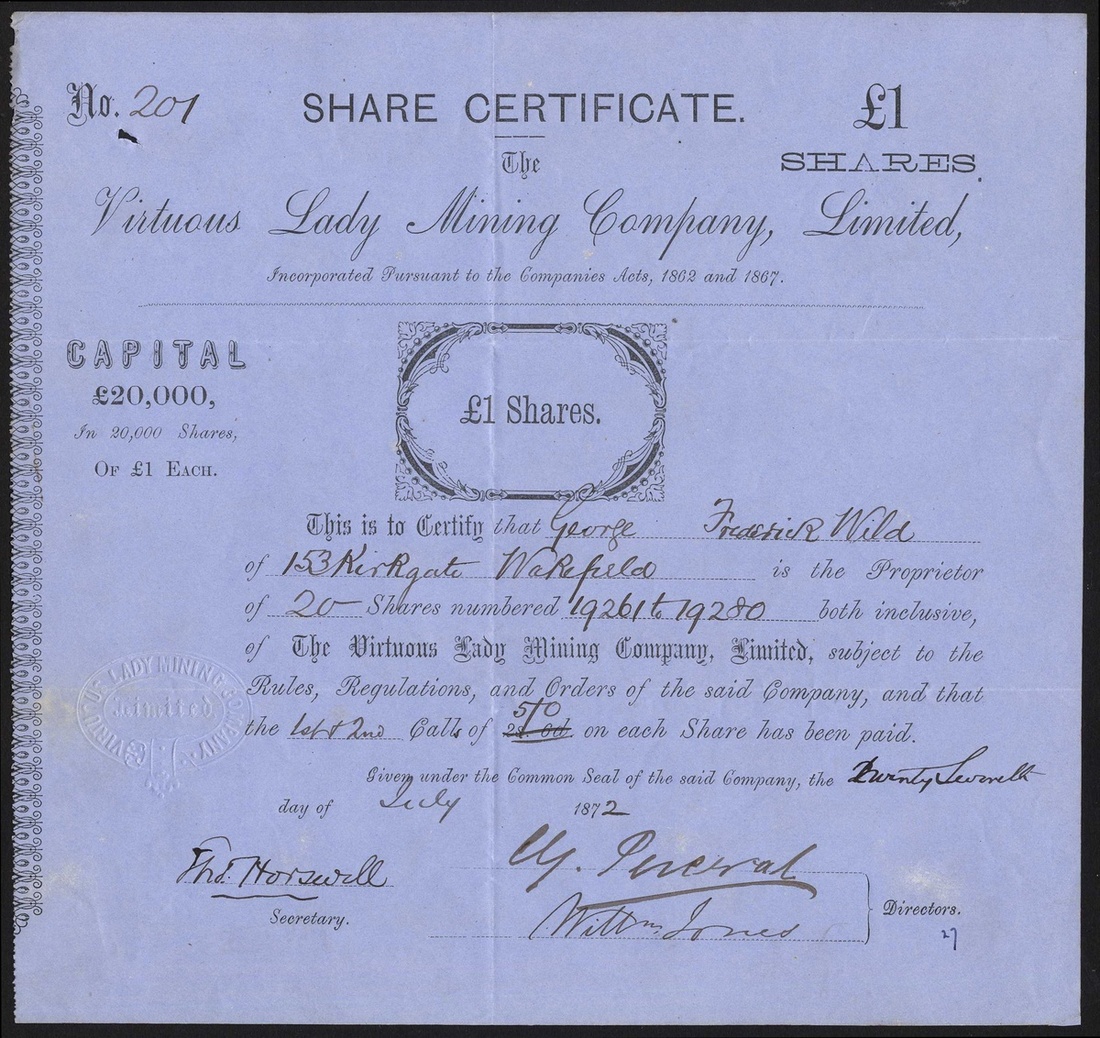 No. 201
SHARE CERTIFICATE.
£1
SHARES.
The
Virtuous Lady Mining Company, Limited,
Incorporated Pursuant to the Companies Acts, 1862 and 1867.
CAPITAL
£20,000,
In 20,000 Shares,
OF £1 EACH.
£1 Shares.
This is to Certify that George Frederick Wild
of 153 Kirkgate Wakefield is the Proprietor
of 20 Shares numbered 19261 to 19280 both inclusive,
of The Virtuous Lady Mining Company, Limited, subject to the
Rules, Regulations, and Orders of the said Company, and that
5/0
the 1st & 2nd Calls of 2s. 6d. on each Share has been paid.
VIRTUOUS LADY MINING COMPANY
Limited
Given under the Common Seal of the said Company, the Twenty Seventh
day of July 1872
Thos. Horswill
Secretary.
Percival
Willm. Jones
Directors.
27